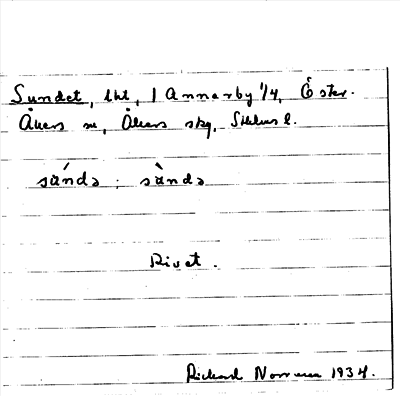 Sundet, lht, 1 Annarby 1/4, Öster-
Åkers sn, Åkers skg, Sthlms l.
súndə ; sùndə
Rivet.
Richard Norrman 1934.